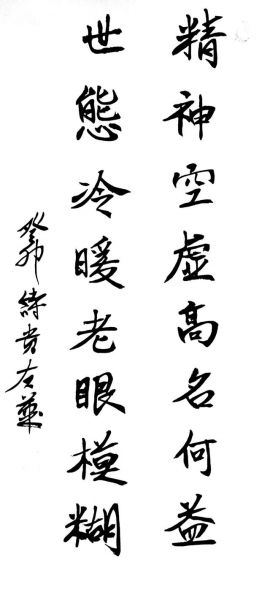 精神空虛高名何益
世態冷暖老眼模糊
癸卯 貴左華